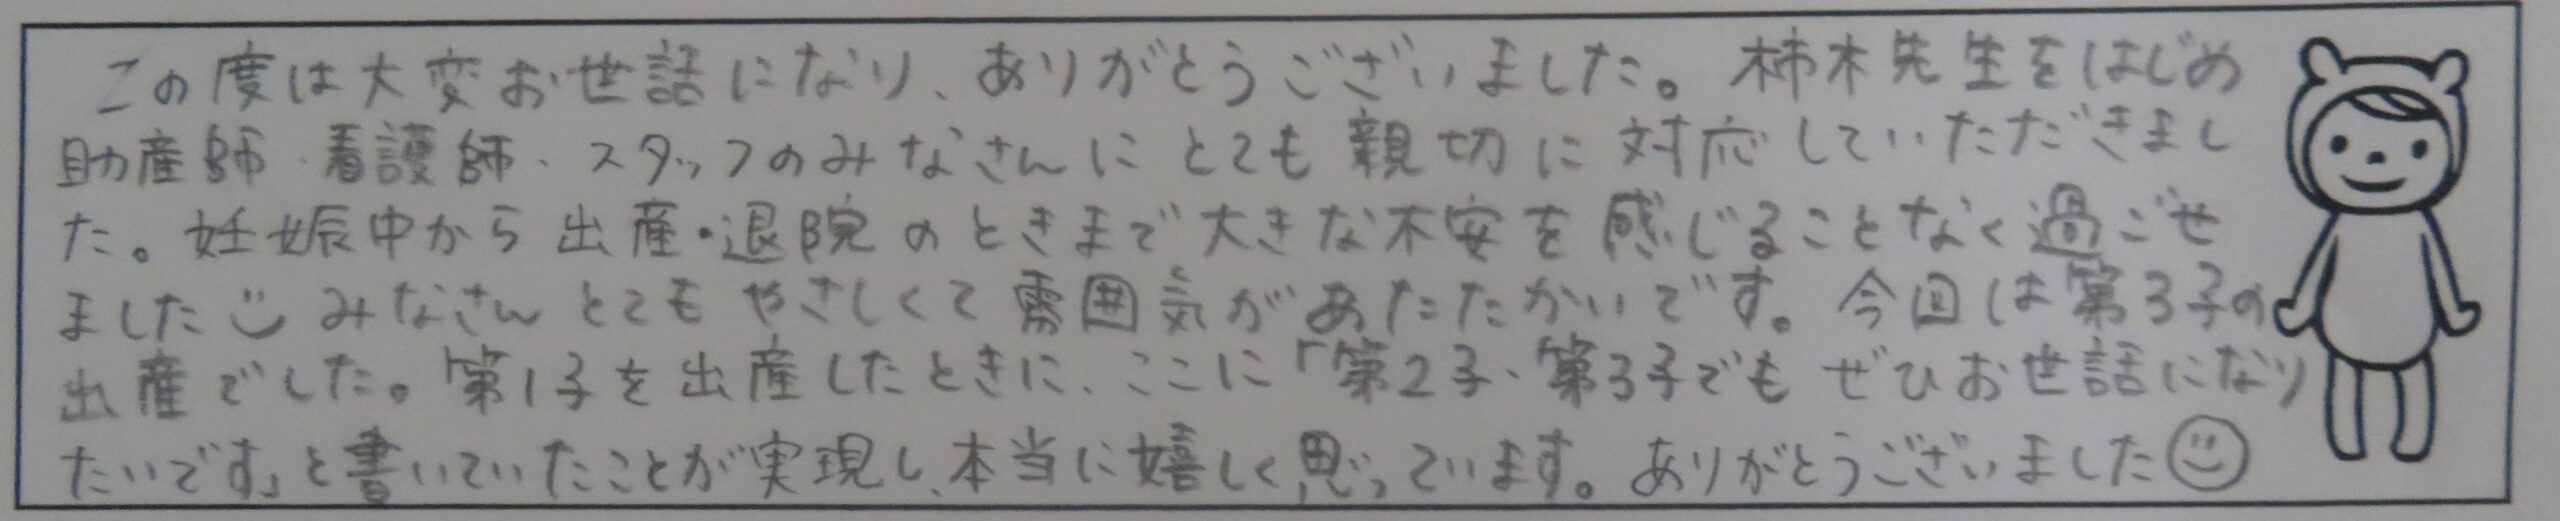 この度は大変お世話になり、ありがとうございました。柿木先生をはじめ
助産師・看護師・スタッフのみなさんにとても親切に対応していただきまし
た。妊娠中から出産・退院のときまで大きな不安を感じることなく過ごせ
ました みなさんとてもやさしくて雰囲気があたたかいです。今回は第3子の
出産でした。第1子を出産したときに、ここに「第2子・第3子でもぜひお世話になり
たいです」と書いていたことが実現し、本当に嬉しく思っています。ありがとうございました